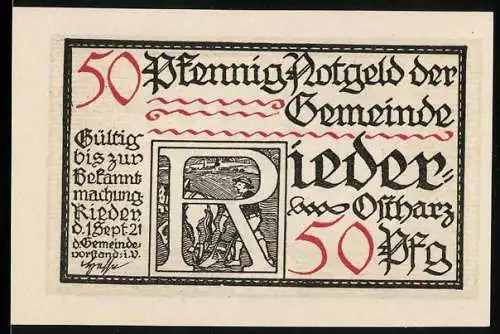 50 Pfennig Notgeld der
Gemeinde
Rieder-
Ostharz
50 Pfg
Gültig
bis zur
Bekannt
machung.
Rieder
d. 1 Sept 21
d. Gemeinde-
vorstand: i.V.